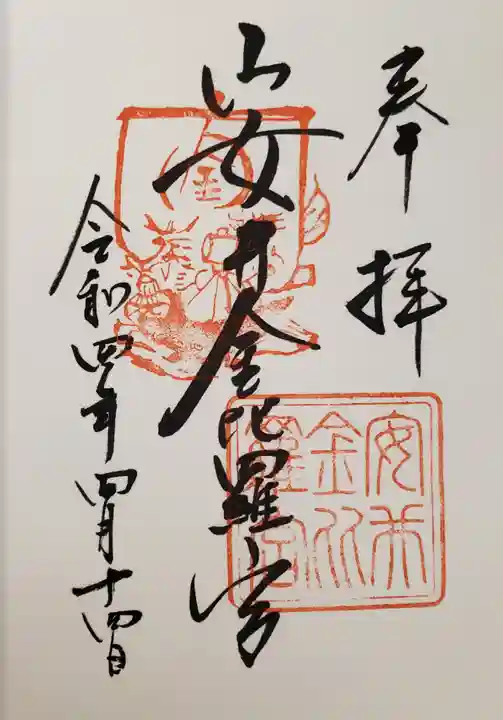 奉拝
安井金比羅宮
令和四年四月十四日
安井
金比
羅宮
金